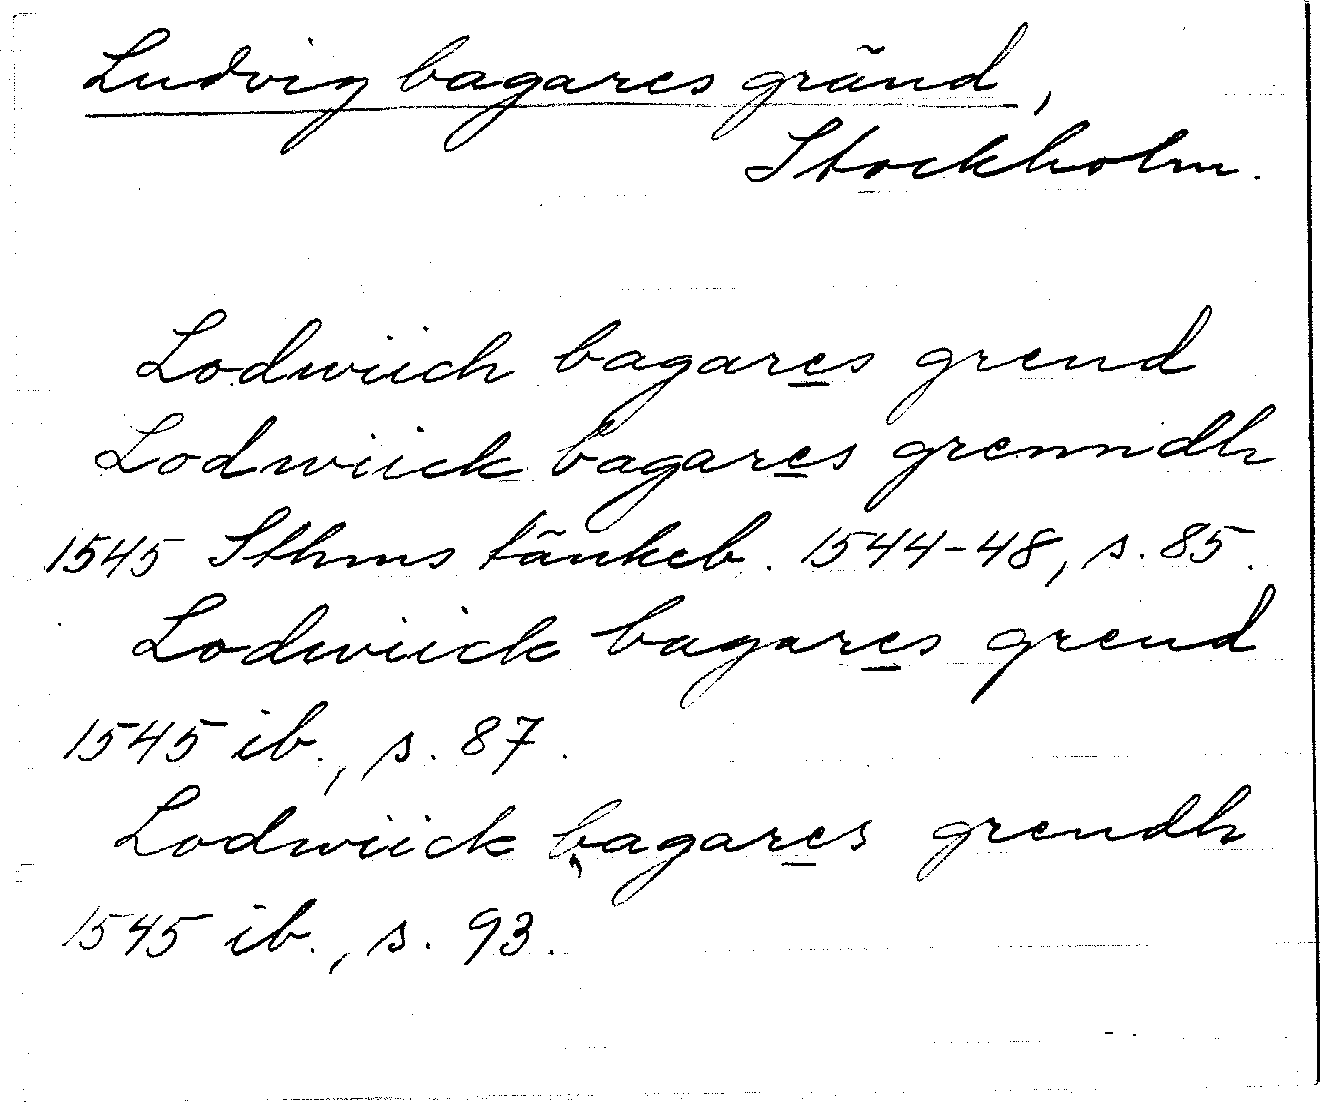 Ludvig bagares gränd,
Stockholm.
Lodwiich bagares grend
Lodwiick bagares grenndh
1545 Sthms tänkeb. 1544-48, s. 85.
Lodwiick bagares grend
1545 ib., s. 87.
Lodwiick bagares grendh
1545 ib., s. 93.